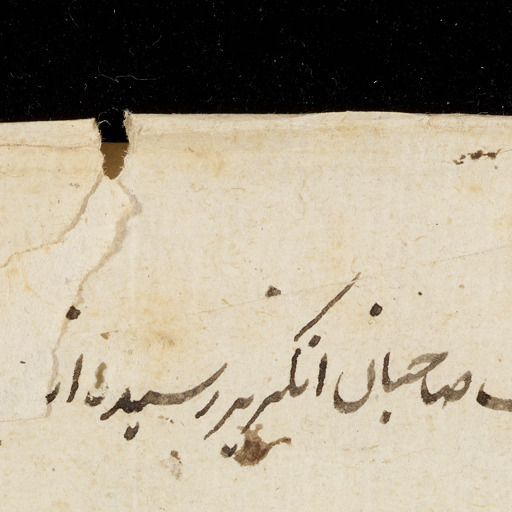 صاحبان انگریز رسیده از